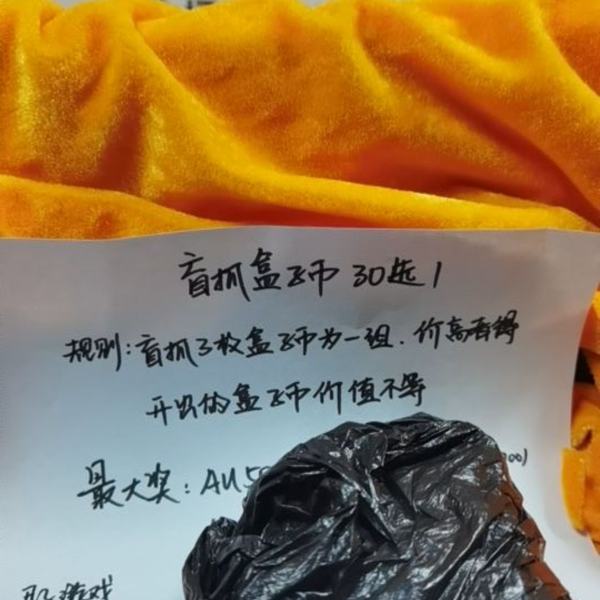 盲抓盒子币 30选1
规则:盲抓3枚盒子币为一组.价高者得
开出的盒子币价值不等
最大奖:AU5
游戏